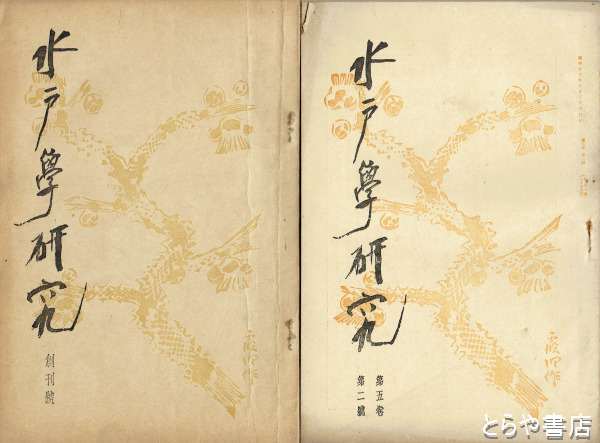 水戸學研究
創刊號
水戸學研究
第五卷
第二號
とらや書店